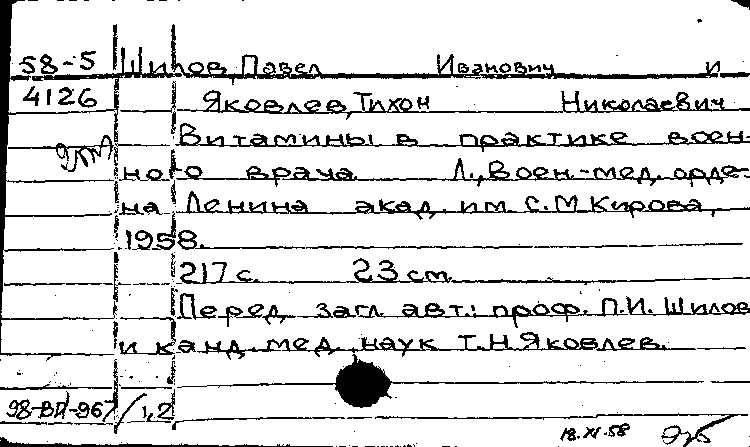 58-5 Шилов, Павел Иванович и
4126 Яковлев, Тихон Николаевич
Витамины в практике воен-
ного врача. Л., Воен.-мед. орде-
на Ленина акад. им. С.М. Кирова,
1958.
217 с. 23 см.
Перед загл. авт.: проф. П.И. Шилов
и канд. мед. наук Т.Н. Яковлев.
1,2
18.XI.58